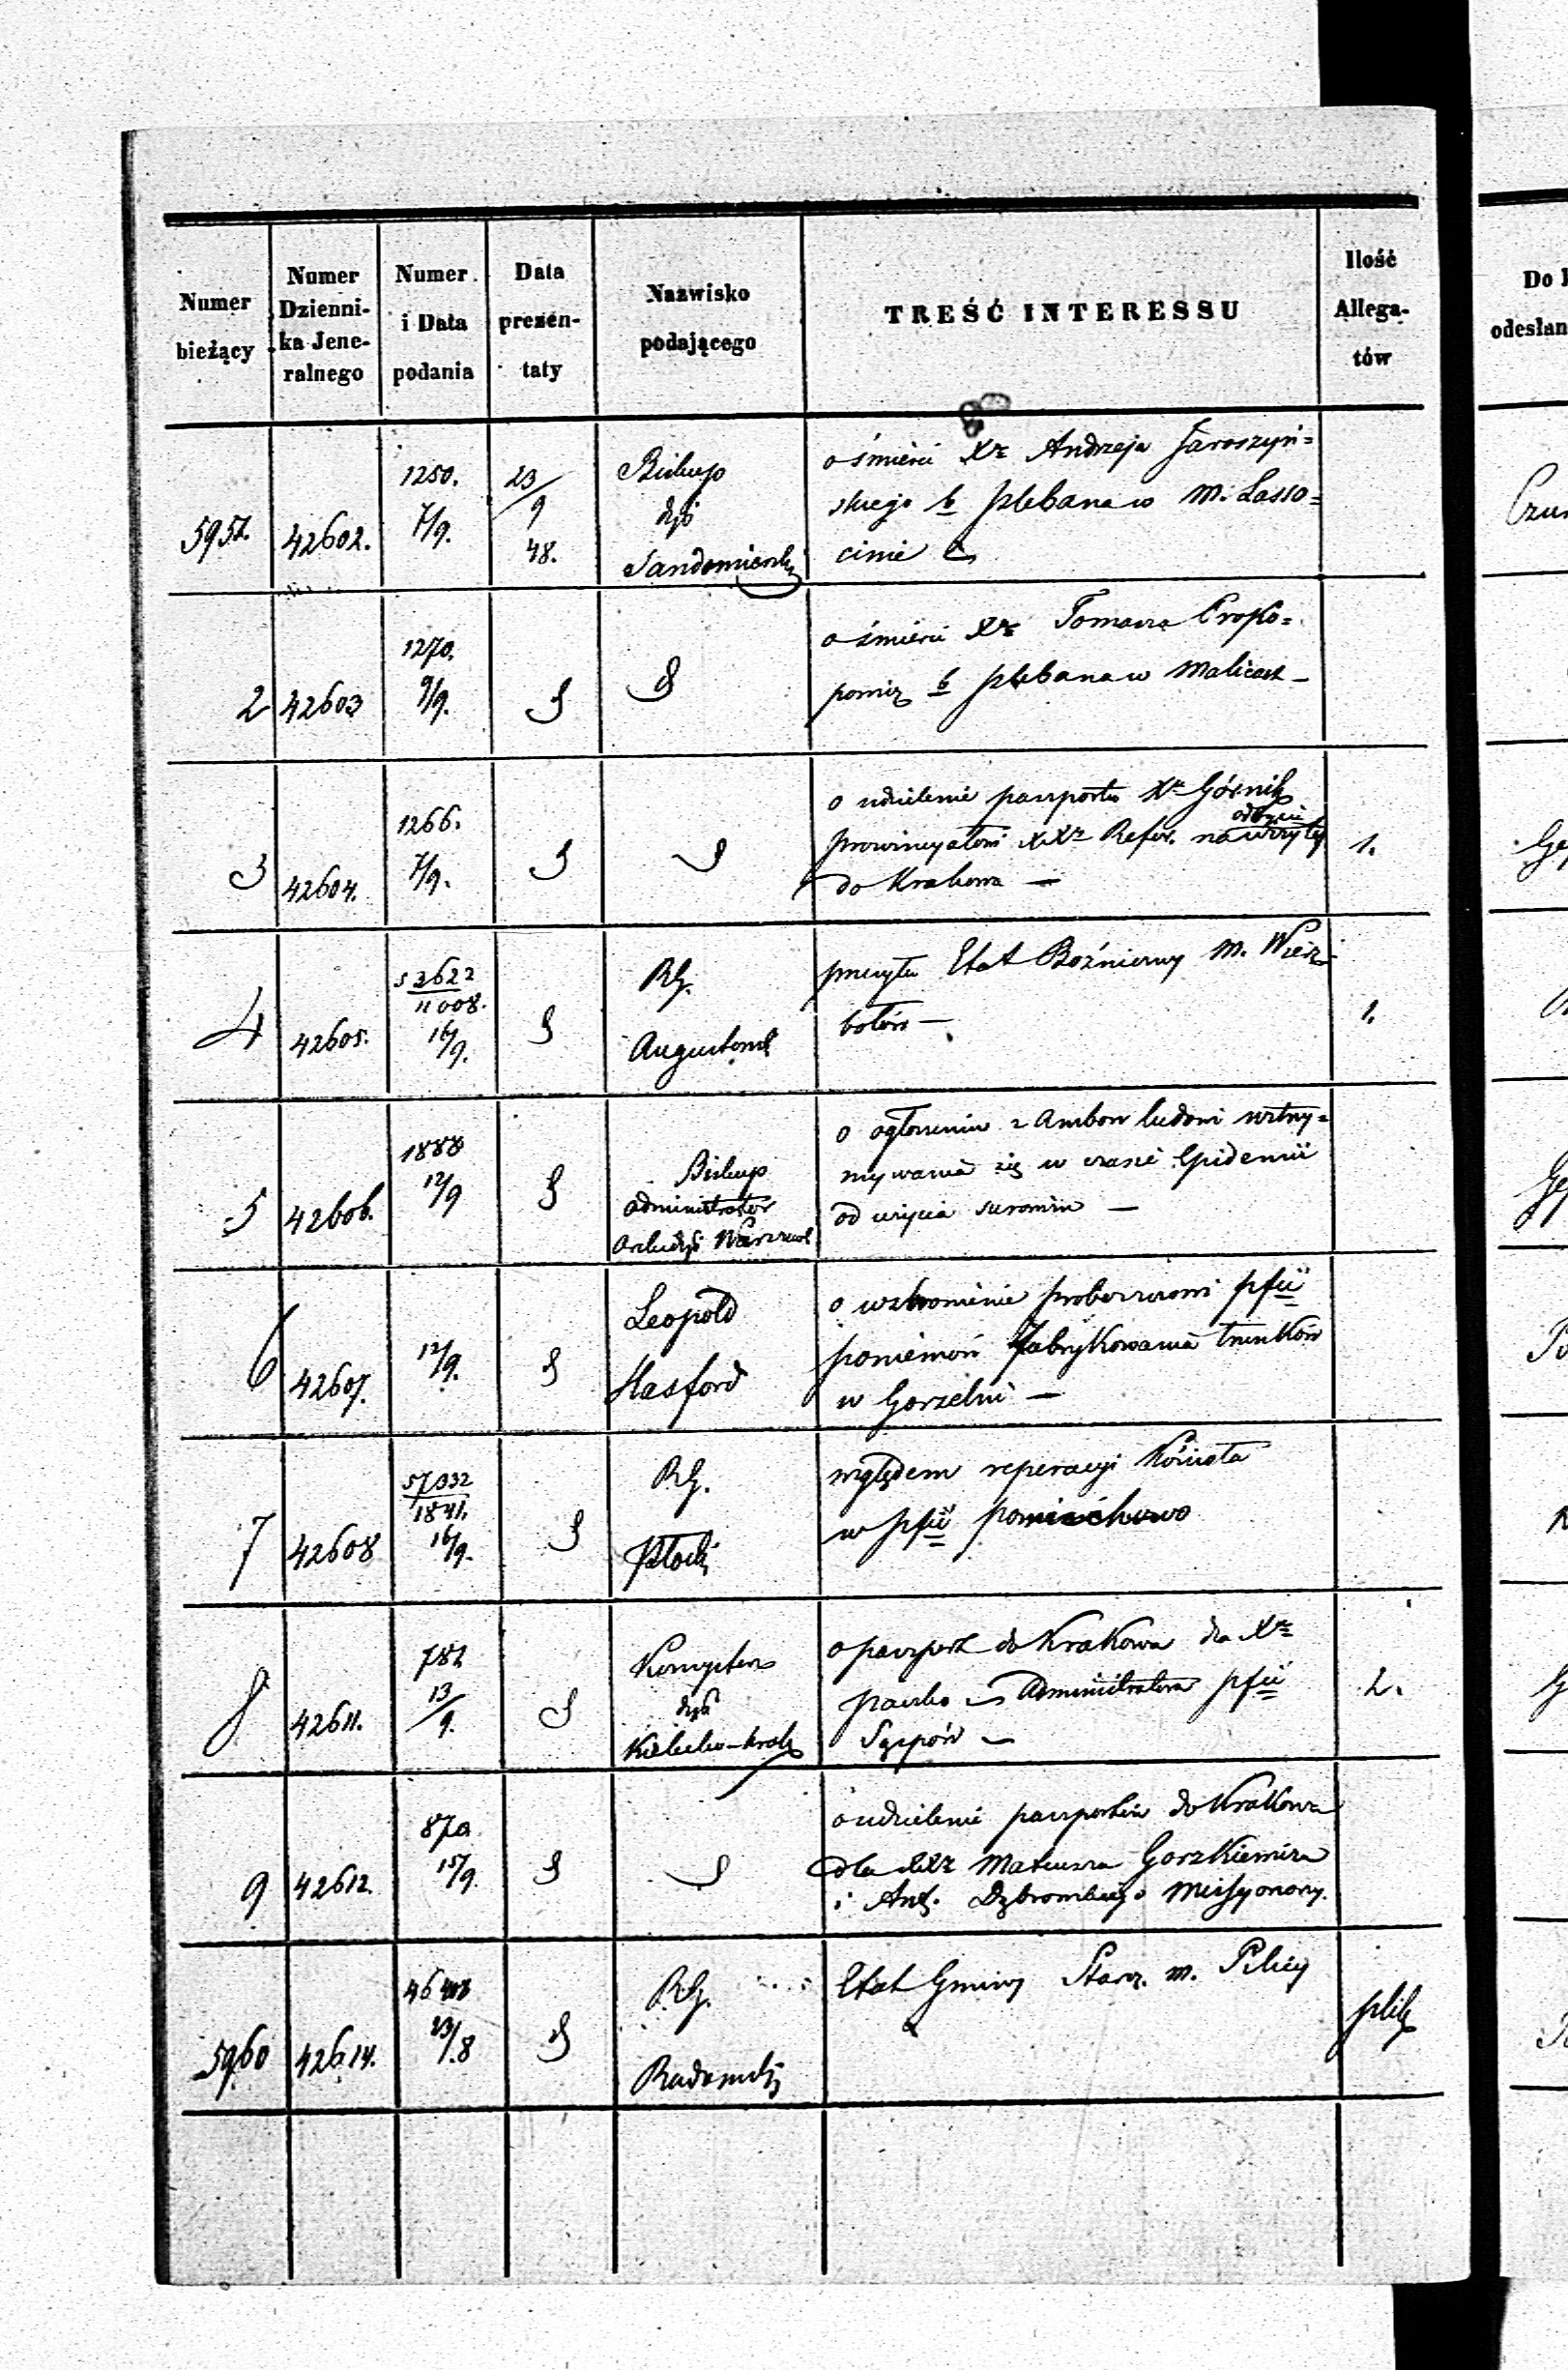 Numer bieżący
Numer Dzienni-
ka Jene-
ralnego
Numer i Data podania
Data prezen-
taty
Nazwisko podającego
TREŚĆ INTERESSU
Ilość Allega-
tów
Do
odesłan
5951. 42602. 1250. 7/9. 23/9 48. Biskup dyẽ Sandomierski
o śmierci Xa Andrzeja Jaroszyń=
skiego b plebana w m. Lasso=
cinie
2 42603 1270. 9/9. S S
o śmierci Xa Tomasza Proko=
powicz b plebana w Malicach —
3 42604. 1266. 7/9. S S
o udzielenie paszportu Xu Górnik
odbycie
prowincyałowi XXz Refor. na wizytę 1.
do Krakowa —
4 42605. 53622/11008. 16/9. S RG. Augustows
przesyła Etat Bożniczny m. Wierz- 1.
bołów —
5 42606. 1888 12/9 S Biskup
administrator
Archidye Warszaws
o ogłoszeniu z Ambon ludowi wstrzy=
mywania się w czasie Epidemii
od użycia surowizn —
6 42607. 12/9. S Leopold
Hasford
o wzbronienie proboszczowi pfii
poniemoń fabrykowania trunków
w Gorzelni —
7 42608 57332/1841. 16/9. S RG. Płocki
względem reperacyi Kościoła
w pfii pomiechowo
8 42611. 782 13/9. S Konsystorz
dyẽ
Kielecko-Krak
o paszport do Krakowa dla Xa
Administratora pfii 2.
Sąspów —
9 42612. 870 15/9. S S
o udzielenie paszportów do Krakowa
dla XXz Mateusza Gorzkiewicza
i Ant. Dąbrowskiego Missyonarzy.
5960 42614. 23/8 S RG. Radomski
Etat Gminy Staroz. m. Pilicy
plik